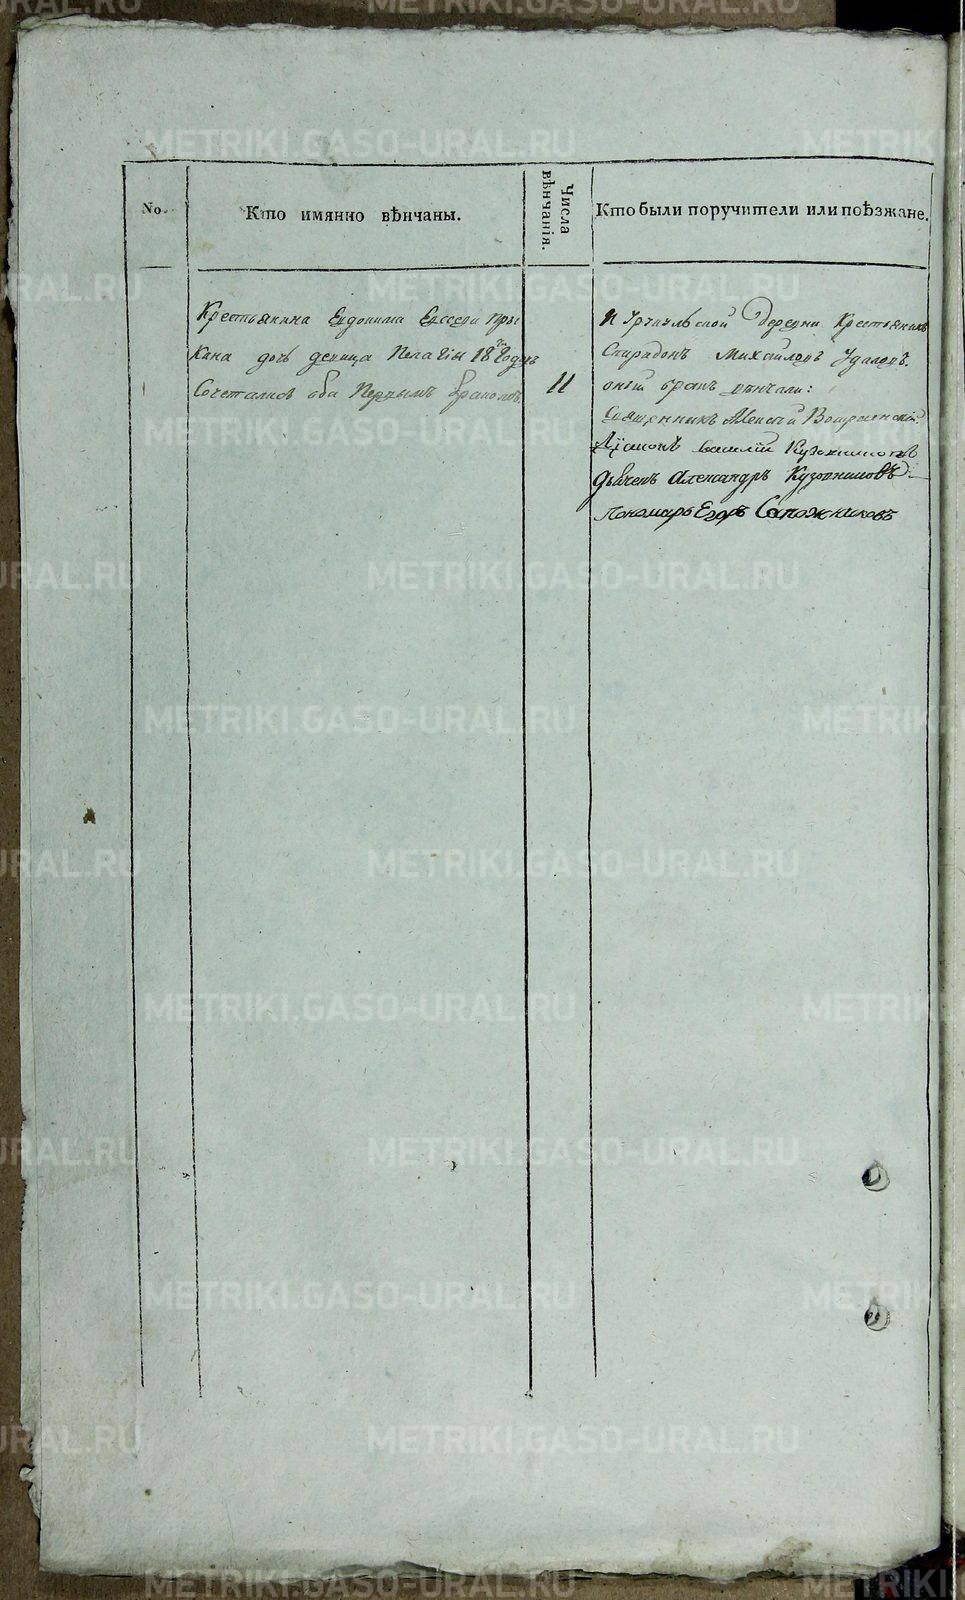 No.
Кто имянно вѣнчаны.
Числа вѣнчанія.
Кто были поручители или поѣзжане.
Крестьянина Евдокима Евсееви
кина дочь девица Пелагiя 18ти Годовъ
Сочетались оба Первымъ бракомъ.
11
и Деревни Крестьянинъ
Спиридонъ Михайловъ Удаловъ.
оной бракъ венчали:
Священникъ Алексѣй
Дiаконъ василiй Кузовниковъ
Дьячекъ Александръ Кузовниковъ
Пономарь Егоръ Сапожниковъ
METRIKI.GASO-URAL.RU